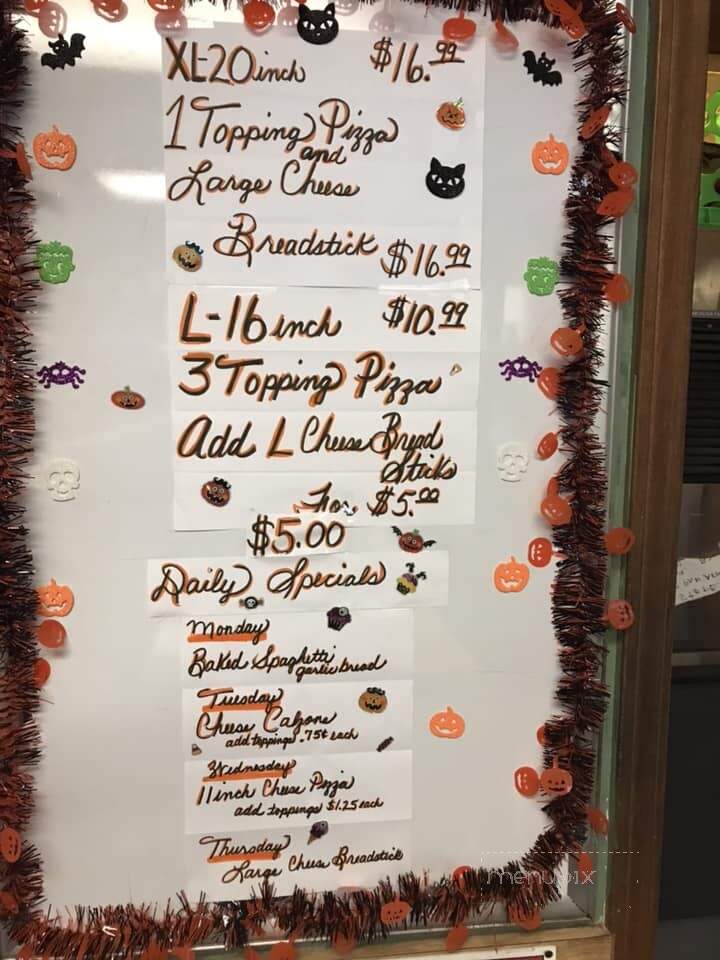 XL-20 inch $16.99
1 Topping Pizza
and
Large Cheese
Breadstick $16.99
L-16 inch $10.99
3 Topping Pizza
Add L Cheese Bread
Sticks
For $5.00
$5.00
Daily Specials
Monday
Baked Spaghetti
garlic bread
Tuesday
Cheese Calzone
add toppings .75¢ each
Wednesday
11 inch Cheese Pizza
add toppings $1.25 each
Thursday
Large Cheese Breadstick
menupix